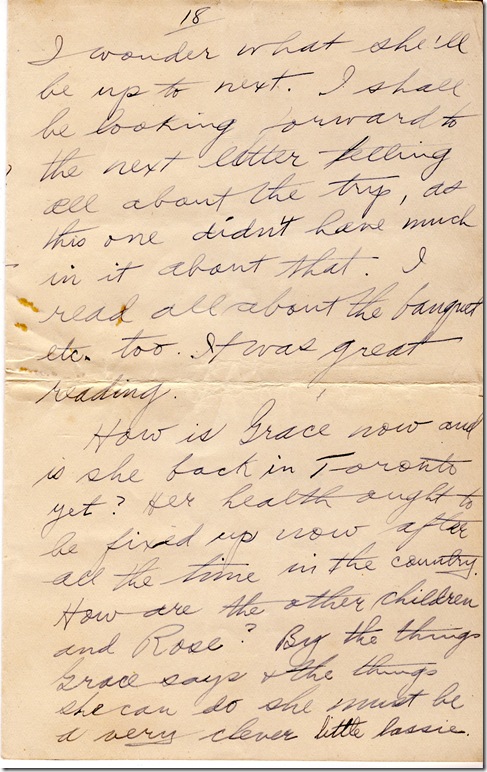 18
I wonder what she'll
be up to next. I shall
be looking forward to
the next letter telling
all about the trip, as
this one didn't have much
in it about that. I
read all about the banquet
etc. too. It was great
reading.
How is Grace now and
is she back in Toronto
yet? Her health ought to
be fixed up now after
all the time in the country.
How are the other children
and Rose? By the things
Grace says & the things
she can do she must be
a very clever little lassie.